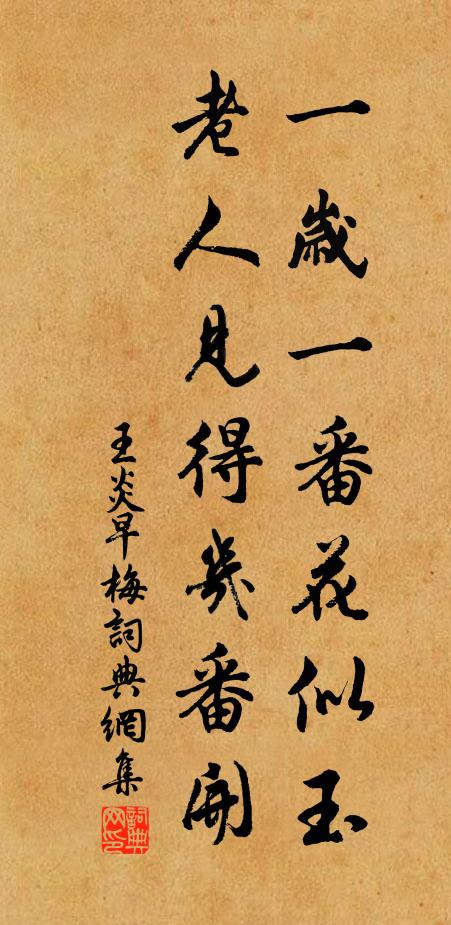 一歲一番花似玉
老人見得幾番開
王炎早梅詞典網集
詞典
网印